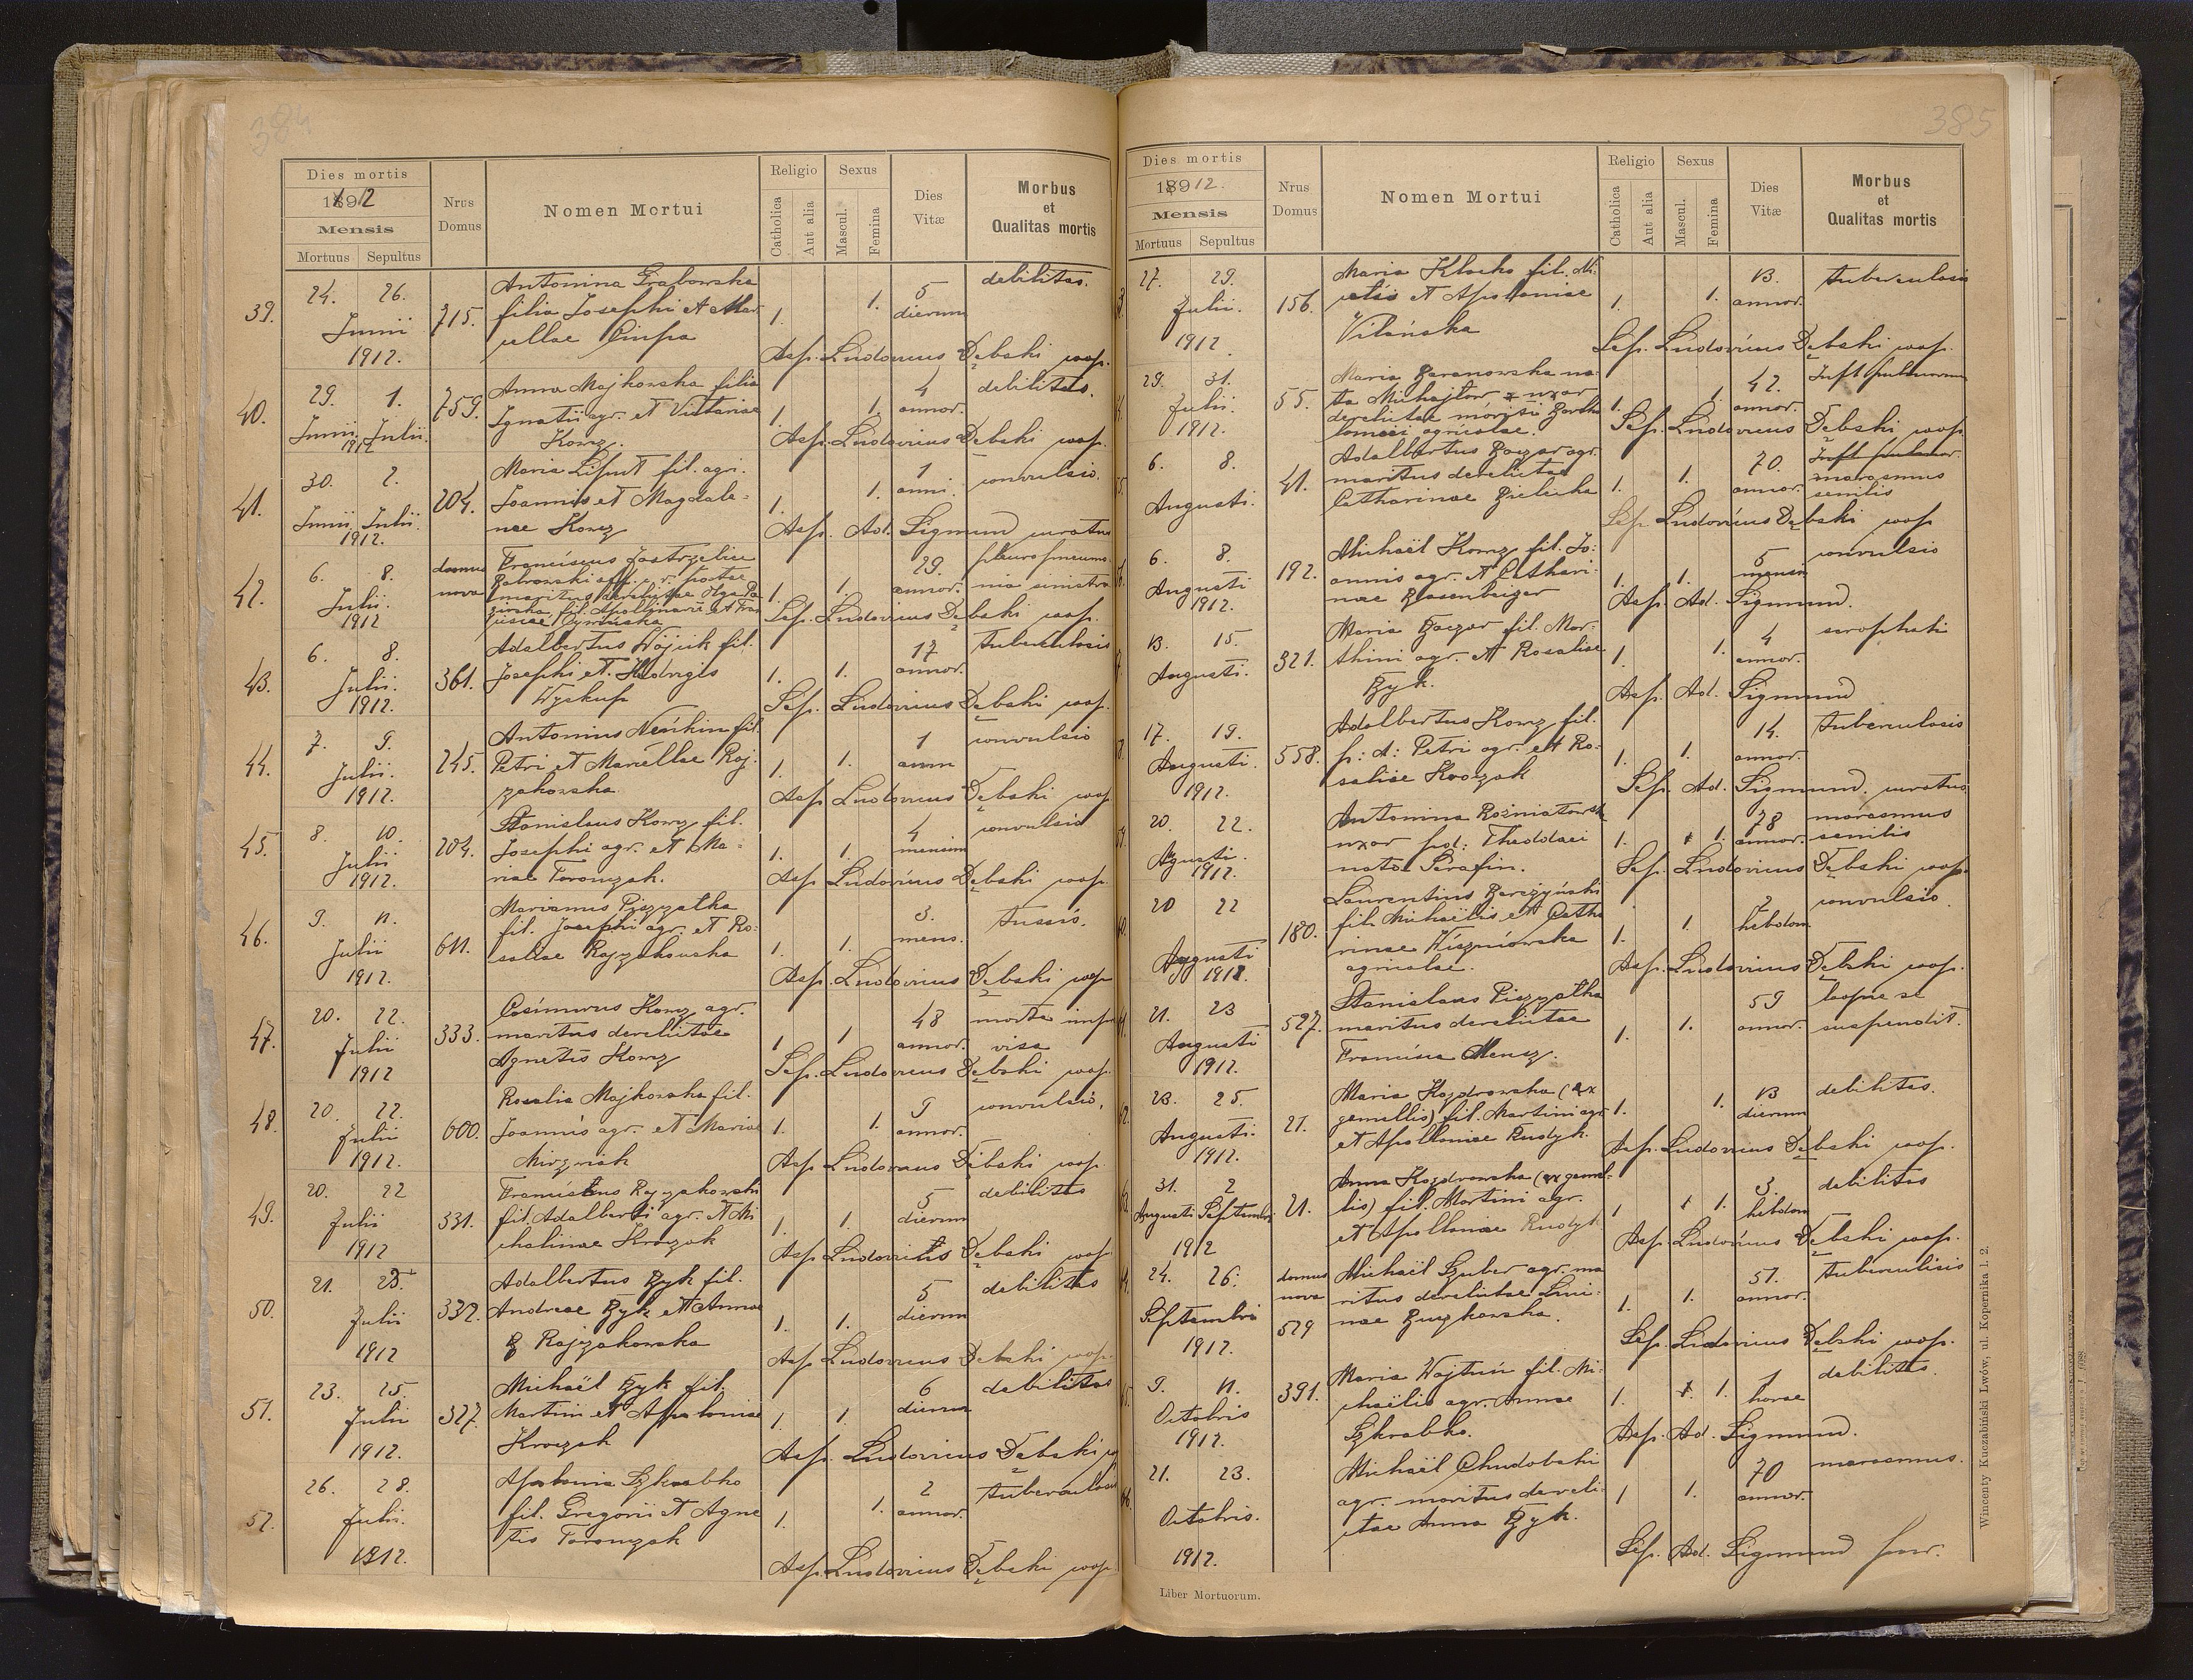 384
Dies mortis
1912
Mensis
Mortuus Sepultus
Nrus Domus
Nomen Mortui
Religio
Catholica
Aut alia
Sexus
Mascul.
Femina
Dies Vitæ
Morbus et Qualitas mortis
39. 24. 26. Junii 1912. 715.
Antonina Grabowska
filia Josephi et Mar
cellae Ciupa
1. 1. 5 dierum debilitas.
Asp. Ludovicus Dębski coop.
40. 29. 1. Junii Julii 1912 759.
Anna Majkowska filia
Ignatii agr. et Victoriae
Korcz.
1. 1. 4 annor. debilitas.
Asp. Ludovicus Dębski coop.
41. 30. 2. Junii Julii 1912. 204.
Maria Lifut fil. agr.
Joannis et Magdale-
nae Korcz
1. 1. 1 anni. convulsio.
Asp. Ad. Sigmund curatus
42. 6. 8. Julii 1912 domus nova
Franciscus Jastrzębiec
maritus derelictae Olga
fil. Apollinarii et Fran
1. 1. 29. annor. pleuropneumo-
nia sinistra
Sep. Ludovicus Dębski coop.
43. 6. 8. Julii. 1912. 361.
Adalbertus Wójcik fil.
Josephi et Hedvigis
Wyskup
1. 1. 17 annor. tuberculosis
Sep. Ludovicus Dębski coop.
44. 7. 9. Julii. 1912. 245.
Antonius Neńkin fil.
Petri et Marcellae Raj-
zakowska
1. 1. 1 anni convulsio
Asp. Ludovicus Dębski coop
45. 8. 10. Julii 1912. 204.
Stanislaus Korcz fil.
Josephi agr. et Ma-
riae Toronczak.
1. 1. 4 mensium convulsio
Asp. Ludovicus Dębski coop.
46. 9. 11. Julii 1912. 611.
Marianus Piszyatka
fil. Josephi agr. et Ro-
saliae Rajzakowska
1. 1. 3. mens. tussis.
Asp. Ludovicus Dębski coop
47. 20. 22. Julii 1912 333.
Casimirus Korcz agr.
maritus derelictae
Agnetis Korcz
1. 1 48 annor. morte impro
visa
Sep. Ludovicus Dębski coop.
48. 20. 22. Julii 1912. 600.
Rosalia Majkowska fil.
Joannis agr. et Mariae
Mirzniak
1. 1. 9 annor. convulsio.
Asp. Ludovicus Dębski coop.
49. 20. 22 Julii 1912 331.
Franciscus Rajzakowski
fil. Adalberti agr. et Mi
chalinae Kroczak
1. 1. 5 dierum debilitas
Asp. Ludovicus Dębski coop.
50. 21. 23. Julii 1912 332.
Adalbertus Zyk fil.
Andreae Zyk et Annae
Rajzakowska
1. 1. 5 dierum debilitas
Asp. Ludovicus Dębski coop.
51. 23. 25. Julii 1912. 327.
Michaël Zyk fil.
Martini et Apoloniae
Kroczak
1. 1. 6 dierum debilitas
Asp. Ludovicus Dębski
52. 26. 28. Julii. 1912.
Apolonia Szkrabko
fil. Gregorii et Agne
tis Toronczak
1. 1. 2 annor. tuberculosis
Asp. Ludovicus Dębski coop
385
Dies mortis
1912.
Mensis
Mortuus Sepultus
Nrus Domus
Nomen Mortui
Religio
Catholica
Aut alia
Sexus
Mascul.
Femina
Dies Vitæ
Morbus et Qualitas mortis
27. 29. Julii. 1912. 156.
Maria Klocko fil. Mi-
chaelis et Apoloniae
Vilańska
1. 1. 13 annor. tuberculosis
Sep. Ludovicus Dębski coop.
29. 31. Julii. 1912. 55.
Maria Baranowska na-
ta Michajłow uxor
derelictae mariti Bartho
lomaei agricolae.
1. 1. 42. annor. Inft pulmonum
Sep. Ludovicus Dębski coop.
6. 8. Augusti. 41.
Adalbertus Baczar agr.
maritus derelictae
Catharinae Zielicka
1. 1. 70. annor. marasmus
senilis
Sep. Ludovicus Dębski coop
6. 8. Augusti 1912. 192.
Michaël Korcz fil. Jo-
annis agr. et Cathari-
nae Rosenberger
1. 1. 5 mensium convulsio
Asp. Ad. Sigmund.
13. 15. Augusti. 321.
Maria Baczar fil. Mar-
thini agr. et Rosaliae
Zyk.
1. 1. 4 annor. scrophuli
Asp. Ad. Sigmund
17. 19. Augusti. 1912. 558.
Adalbertus Korcz fil.
p: d: Petri agr. et Ro-
saliae Kroczak
1. 1. 14. annor. tuberculosis
Sep. Ad. Sigmund. curatus
20. 22. Agusti. 1912.
Antonina Rożniatowska
uxor pd: Thaddaei
nata Serafin.
1. 1. 78 annor. marasmus
senilis
Sep. Ludovicus Dębski coop.
20 22 Augusti 1912. 180.
Laurentius Barczyński
fil. Michaëlis et Catha
rinae Wiszniowska
agricolae.
1. 1. 2 hebdom. convulsio.
Asp. Ludovicus Dębski coop.
21. 23 Augusti 1912. 527.
Stanislaus Piszyatka
maritus derelictae
Francisca Mencz.
1. 1. 59 annor. laque se
suspendit.
23. 25. Augusti. 1912. 21.
Maria Kozdrowska (ex
gemellis) fil. Martini agr.
et Apolloniae Rudyk.
1. 1. 13 dierum debilitas.
Asp. Ludovicus Dębski coop.
31. 2 Augusti Septembris 1912 21.
Anna Kozdrowska (ex gemel-
lis) fil. Martini agr.
et Apolloniae Rudyk
1 1. 3. hebdom debilitas
Asp. Ludovicus Dębski coop.
24. 26. Septembris 1912. domus nova 529
Michaël Szuber agr. ma
ritus derelictae
1. 1. 51. annor. tuberculisis
Sep. Ludovicus Dębski coop.
9. 11. Octobris 1912. 391.
Maria Wajtun fil. Mi-
chaëlis agr. Annae
Szkrabko.
1. 1. 1 horae debilitas.
Asp. Ad. Sigmund.
21. 23. Octobris. 1912.
Michaël Chudobski
agr. maritus dereli-
ctae Anna Zyk.
1 1. 70 annor. marasmus.
Sep. Ad. Sigmund
Liber Mortuorum.
Wincenty Kuczabiński Lwów, ul. Kopernika l. 2.